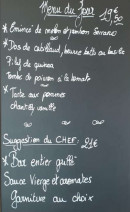 Menu du Jour 19€50
* Emincé de melon et jambon serrano
* Dos de cabillaud, beurre battu au basilic
Pilaf de quinoa
Tombée de poivron à la tomate
* Tarte aux pommes
chantilly vanille
Suggestion du CHEF: 21€
* Bar entier grillé
Sauce Vierge et aromates
Garniture au choix